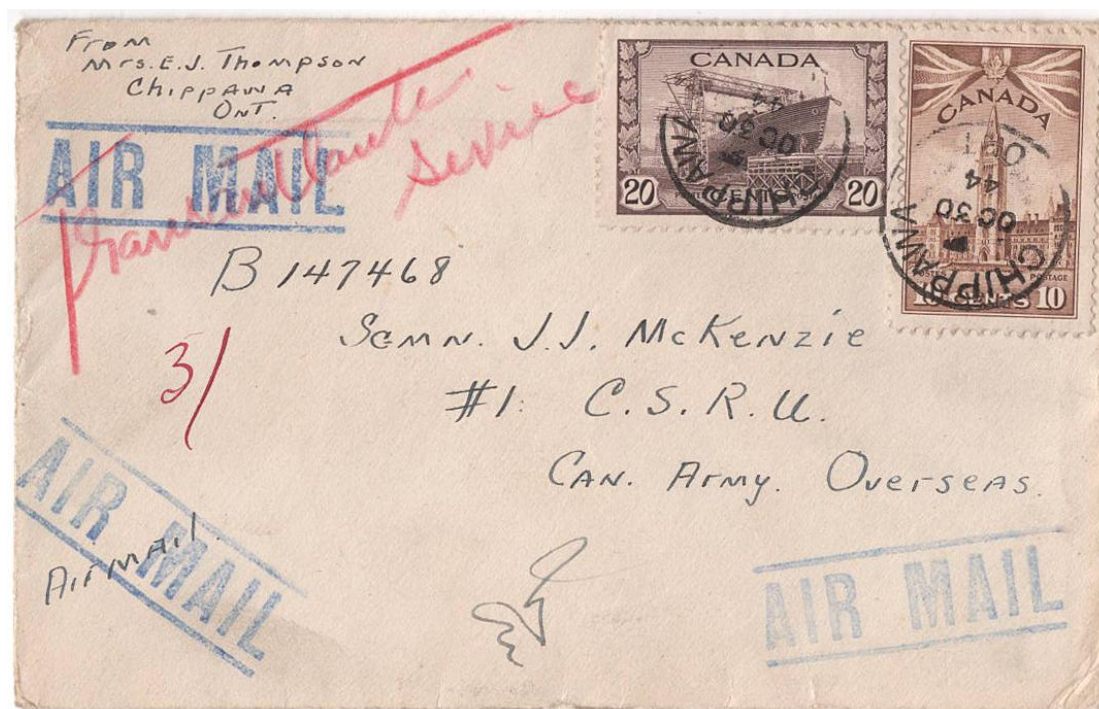 From
Mrs. E. J. Thompson
Chippawa
Ont.
AIR MAIL
Transatlantic
Service
CANADA
20 CENTS 20
CHIPPAWA
OC 30
44
CANADA
POSTES POSTAGE
10 CENTS 10
CHIPPAWA
OC 30
44
ONT
B 147468
3/
J. J. McKenzie
#1. C. S. R. U.
Can. Army. Overseas.
AIR MAIL
Air mail
AIR MAIL